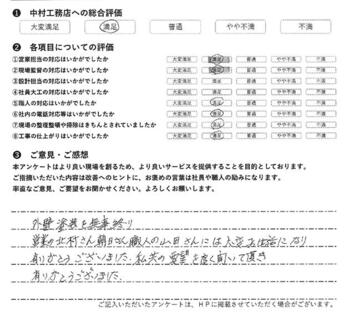 ❶ 中村工務店への総合評価
大変満足 満足 普通 やや不満 不満
❷ 各項目についての評価
①営業担当の対応はいかがでしたか 大変満足 満足 普通 やや不満 不満
②現場監督の対応はいかがでしたか 大変満足 満足 普通 やや不満 不満
③設計担当の対応はいかがでしたか 大変満足 満足 普通 やや不満 不満
④社員大工の対応はいかがでしたか 大変満足 満足 普通 やや不満 不満
⑤職人の対応はいかがでしたか 大変満足 満足 普通 やや不満 不満
⑥社内の電話対応等はいかがでしたか 大変満足 満足 普通 やや不満 不満
⑦現場の整理整頓や掃除はきちんとされていましたか 大変満足 満足 普通 やや不満 不満
⑧工事の仕上がりはいかがでしたか 大変満足 満足 普通 やや不満 不満
❸ ご意見・ご感想
本アンケートはより良い現場を創るため、より良いサービスを提供することを目的としております。
ご指摘いただいた内容は改善へのヒントに、お褒めの言葉は社員や職人の励みになります。
率直なご意見、ご要望をお聞かせください。よろしくお願いします。
外壁塗装も無事終り
営業の北村さん 朝日さん 職人の山田さんには大変お世話になり
ありがとうございました。私共の要望を良く聞いて頂き
ありがとうございました。
ご記入いただいたアンケートは、HPに掲載させていただく場合がございます。